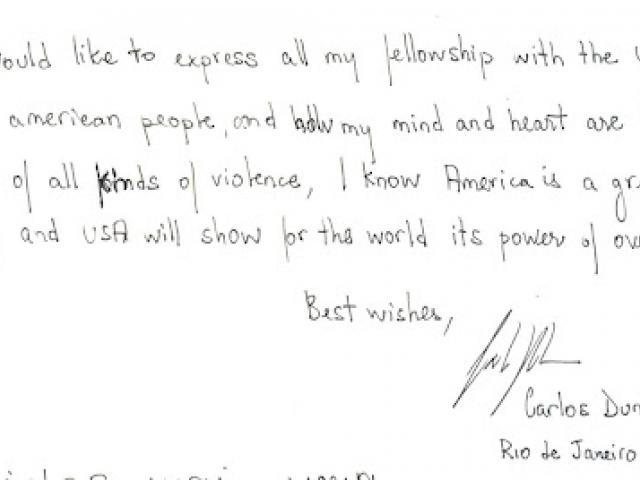 ould like to express all my fellowship with the
american people, and how my mind and heart are
of all kinds of violence, I know America is a gr
and USA will show for the world its power of ov
Best wishes,
Carlos Dur
Rio de Janeiro